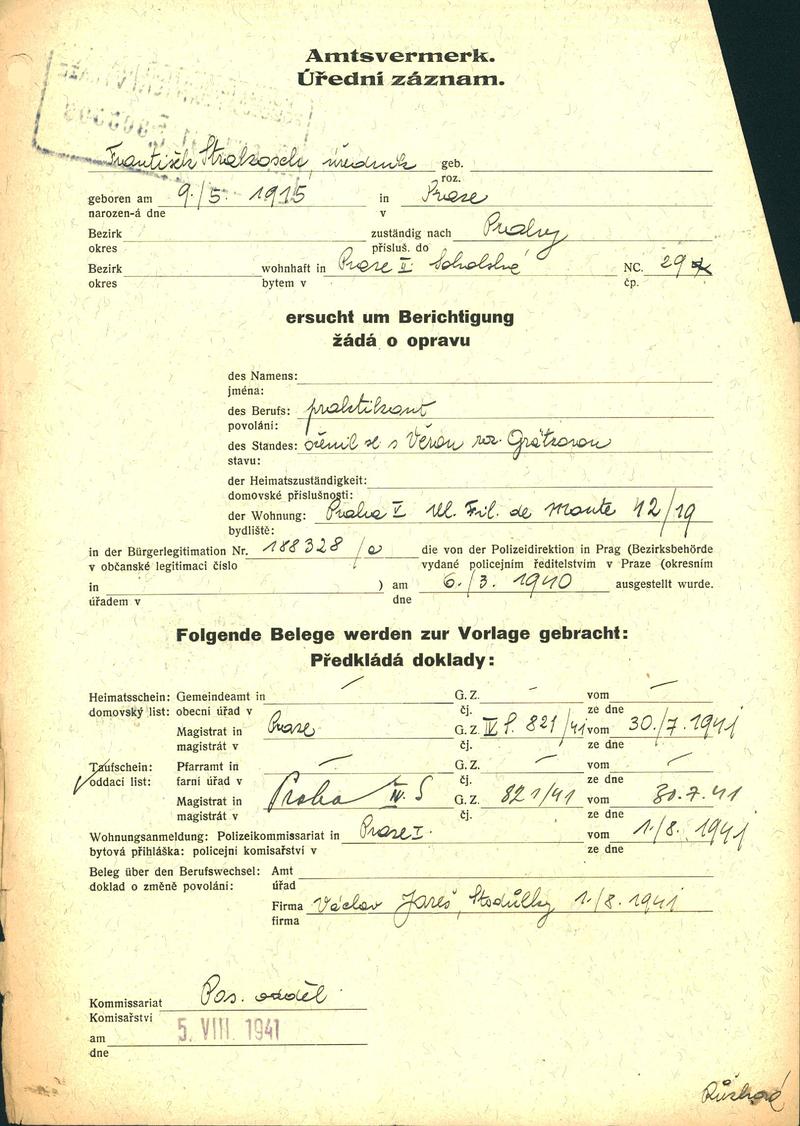 Amtsvermerk.
Úřední záznam.
František Strakosch, úředník geb.
roz.
geboren am 9./5. 1915 in Praze
narozen-á dne v
Bezirk zuständig nach Prahy
okres přísluš. do
Bezirk wohnhaft in Praze II. Sokolská NC. 29
okres bytem v čp.
ersucht um Berichtigung
žádá o opravu
des Namens:
jména:
des Berufs: praktikant
povolání:
des Standes: oženil se s Věrou roz. Grätzovou
stavu:
der Heimatszuständigkeit:
domovské příslušnosti:
der Wohnung: Praha I Ul. Fil. de Monte 12/19
bydliště:
in der Bürgerlegitimation Nr. 188328/a die von der Polizeidirektion in Prag (Bezirksbehörde
v občanské legitimaci číslo vydané policejním ředitelstvím v Praze (okresním
in ) am 6./3. 1940 ausgestellt wurde.
úřadem v dne
Folgende Belege werden zur Vorlage gebracht:
Předkládá doklady:
Heimatsschein: Gemeindeamt in — G. Z. — vom —
domovský list: obecní úřad v čj. ze dne
Magistrat in Praze G. Z. IV S. 821/41 vom 30./7. 1941
magistrát v čj. ze dne
Taufschein: Pfarramt in — G. Z. — vom —
oddací list: farní úřad v čj. ze dne
Magistrat in Praha IV. S G. Z. 821/41 vom 30.7.41
magistrát v čj. ze dne
Wohnungsanmeldung: Polizeikommissariat in Praze I. vom 1./8. 1941
bytová přihláška: policejní komisařství v ze dne
Beleg über den Berufswechsel: Amt
doklad o změně povolání: úřad
Firma Václav Jareš, Stodůlky 1./8. 1941
firma
Kommissariat Pas. odděl.
Komisařství
am 5. VIII. 1941
dne